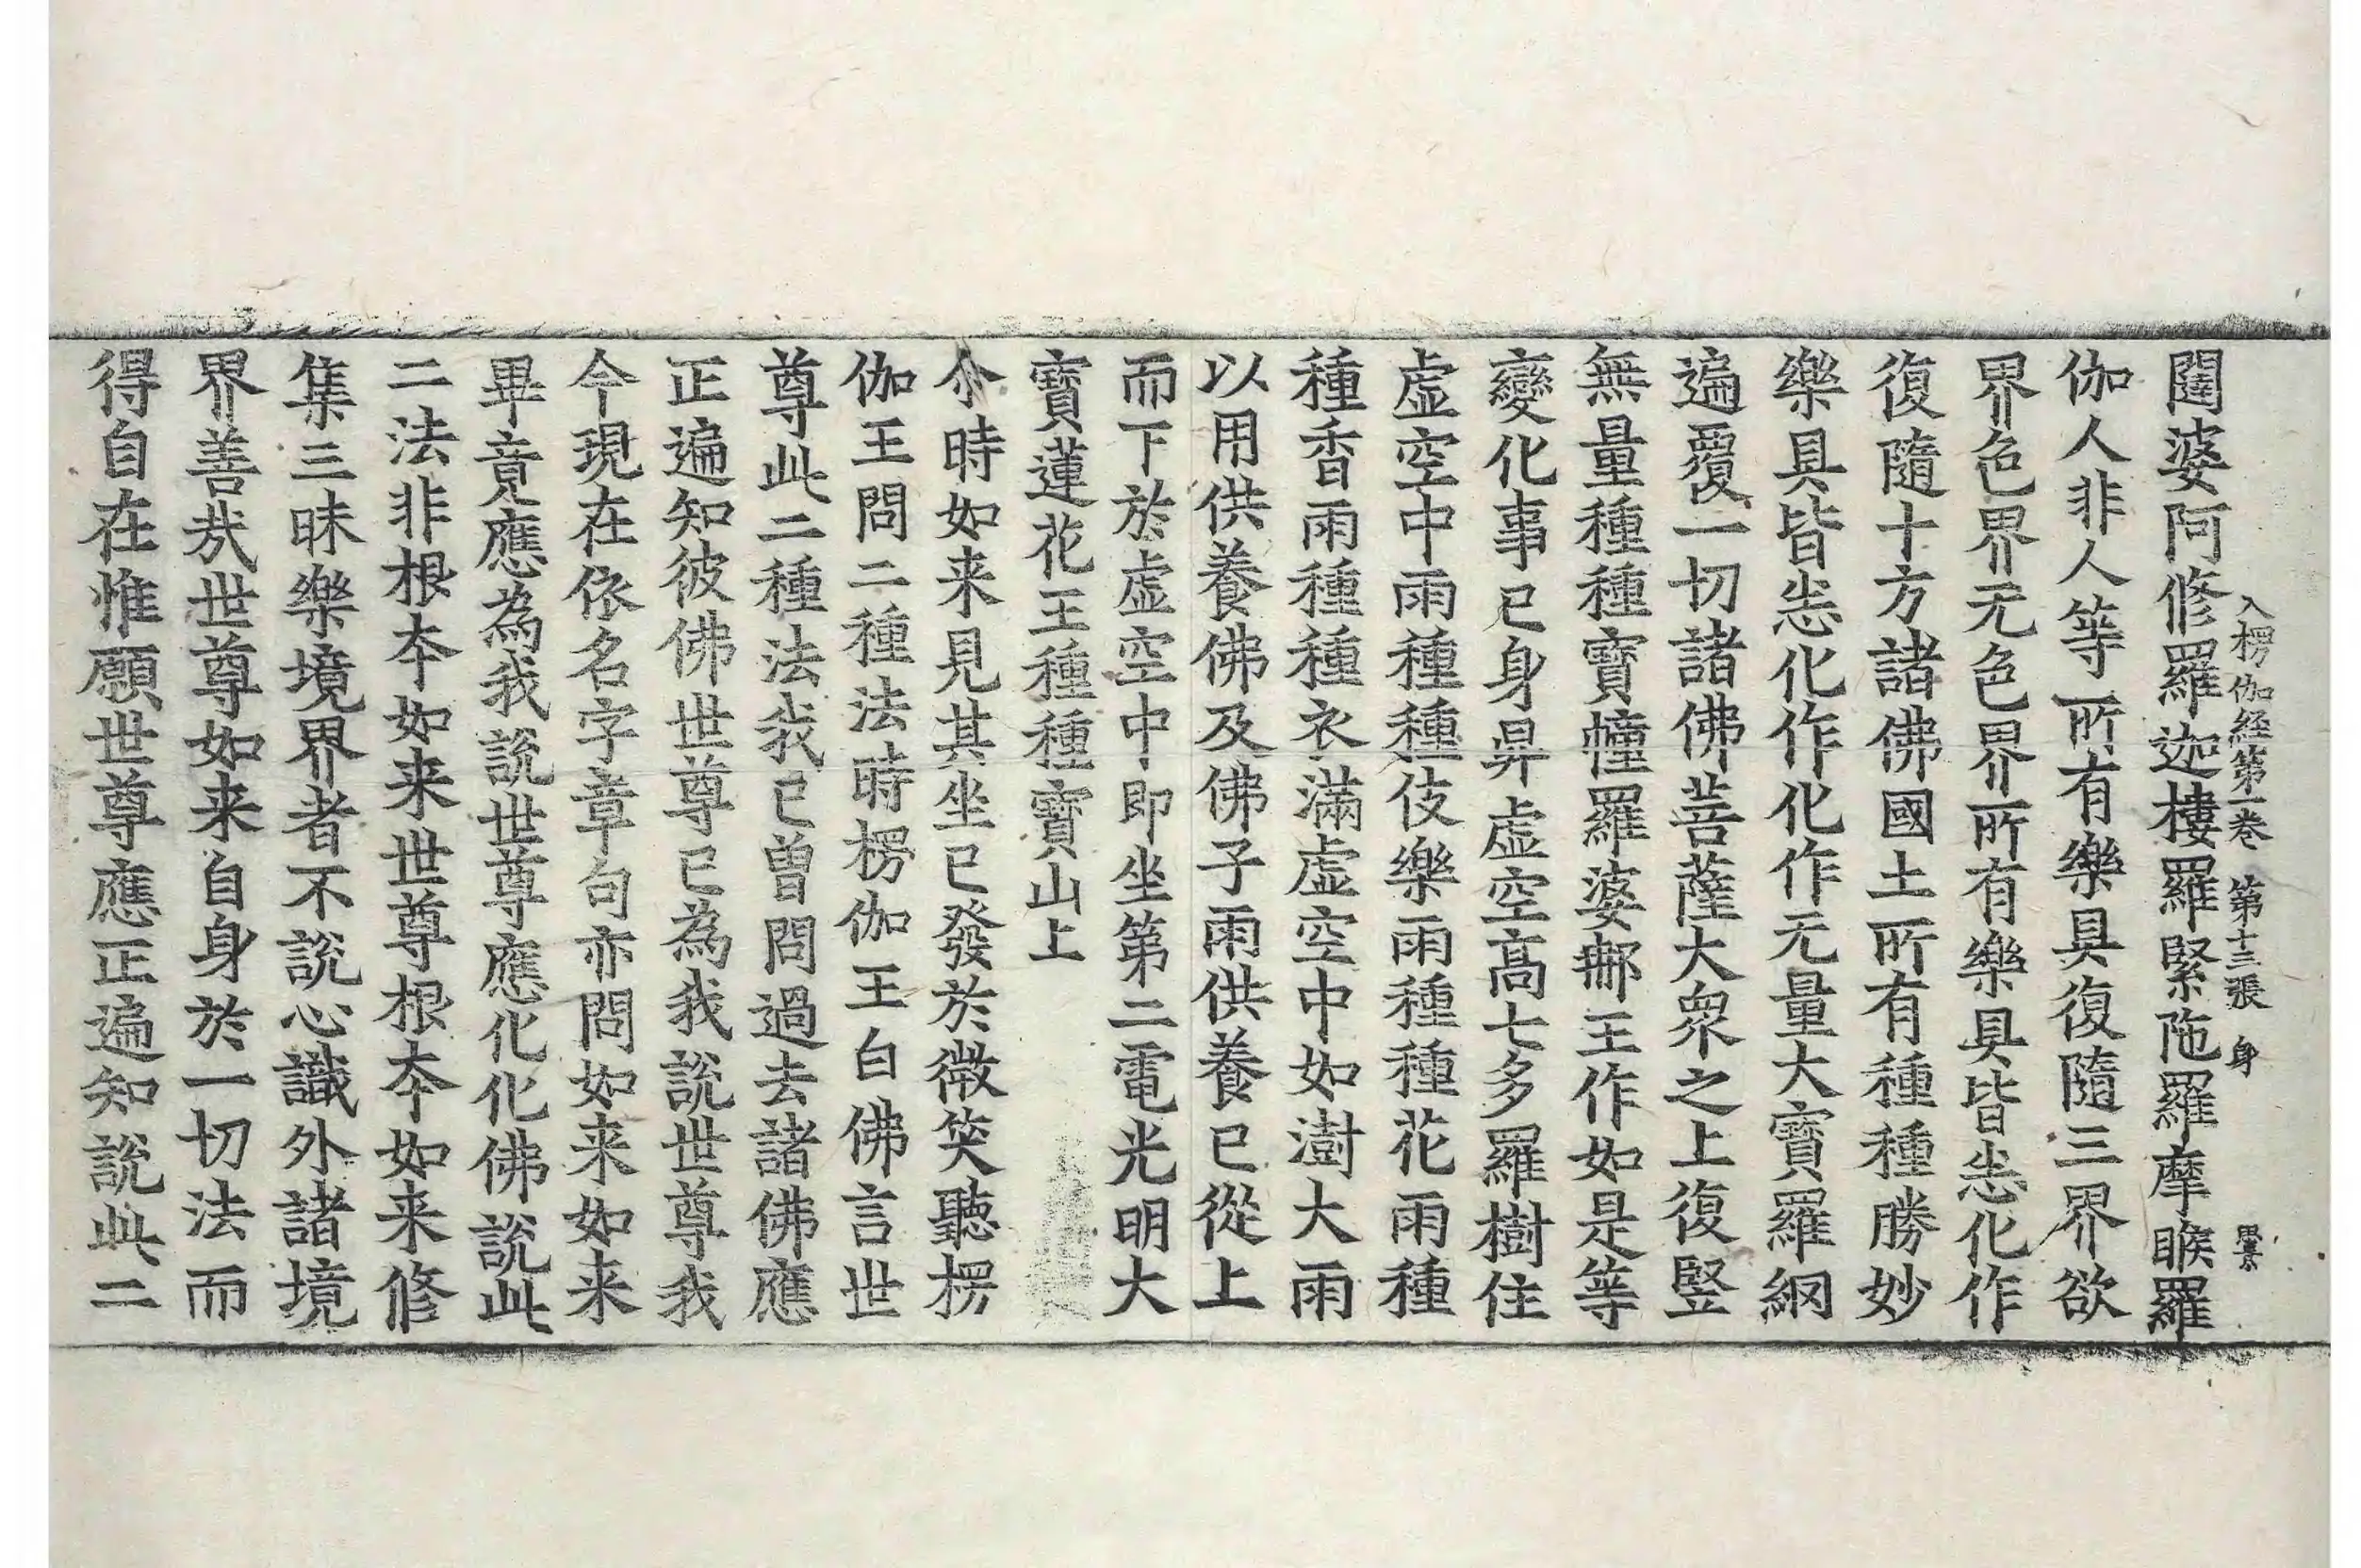 入楞伽経第一巻 第十三張 身
闥婆阿修羅迦樓羅緊陁羅摩睺羅
伽人非人等所有樂具復隨三界欲
界色界无色界所有樂具皆悉化作
復隨十方諸佛國土所有種種勝妙
樂具皆悉化作化作无量大寶羅網
遍覆一切諸佛菩薩大衆之上復竪
無量種種寶幢羅婆那王作如是等
變化事已身昇虛空高七多羅樹住
虛空中雨種種伎樂雨種種花雨種
種香雨種種衣滿虛空中如澍大雨
以用供養佛及佛子雨供養已從上
而下於虛空中即坐第二電光明大
寶蓮花王種種寶山上
尒時如来見其坐已發於微笑聽楞
伽王問二種法時楞伽王白佛言世
尊此二種法我已曾問過去諸佛應
正遍知彼佛世尊已為我說世尊我
今現在依名字章句亦問如来如来
畢竟應為我說世尊應化化佛說此
二法非根夲如来世尊根夲如来修
集三昧樂境界者不說心識外諸境
界善㢤世尊如来自身於一切法而
得自在惟願世尊應正遍知說此二